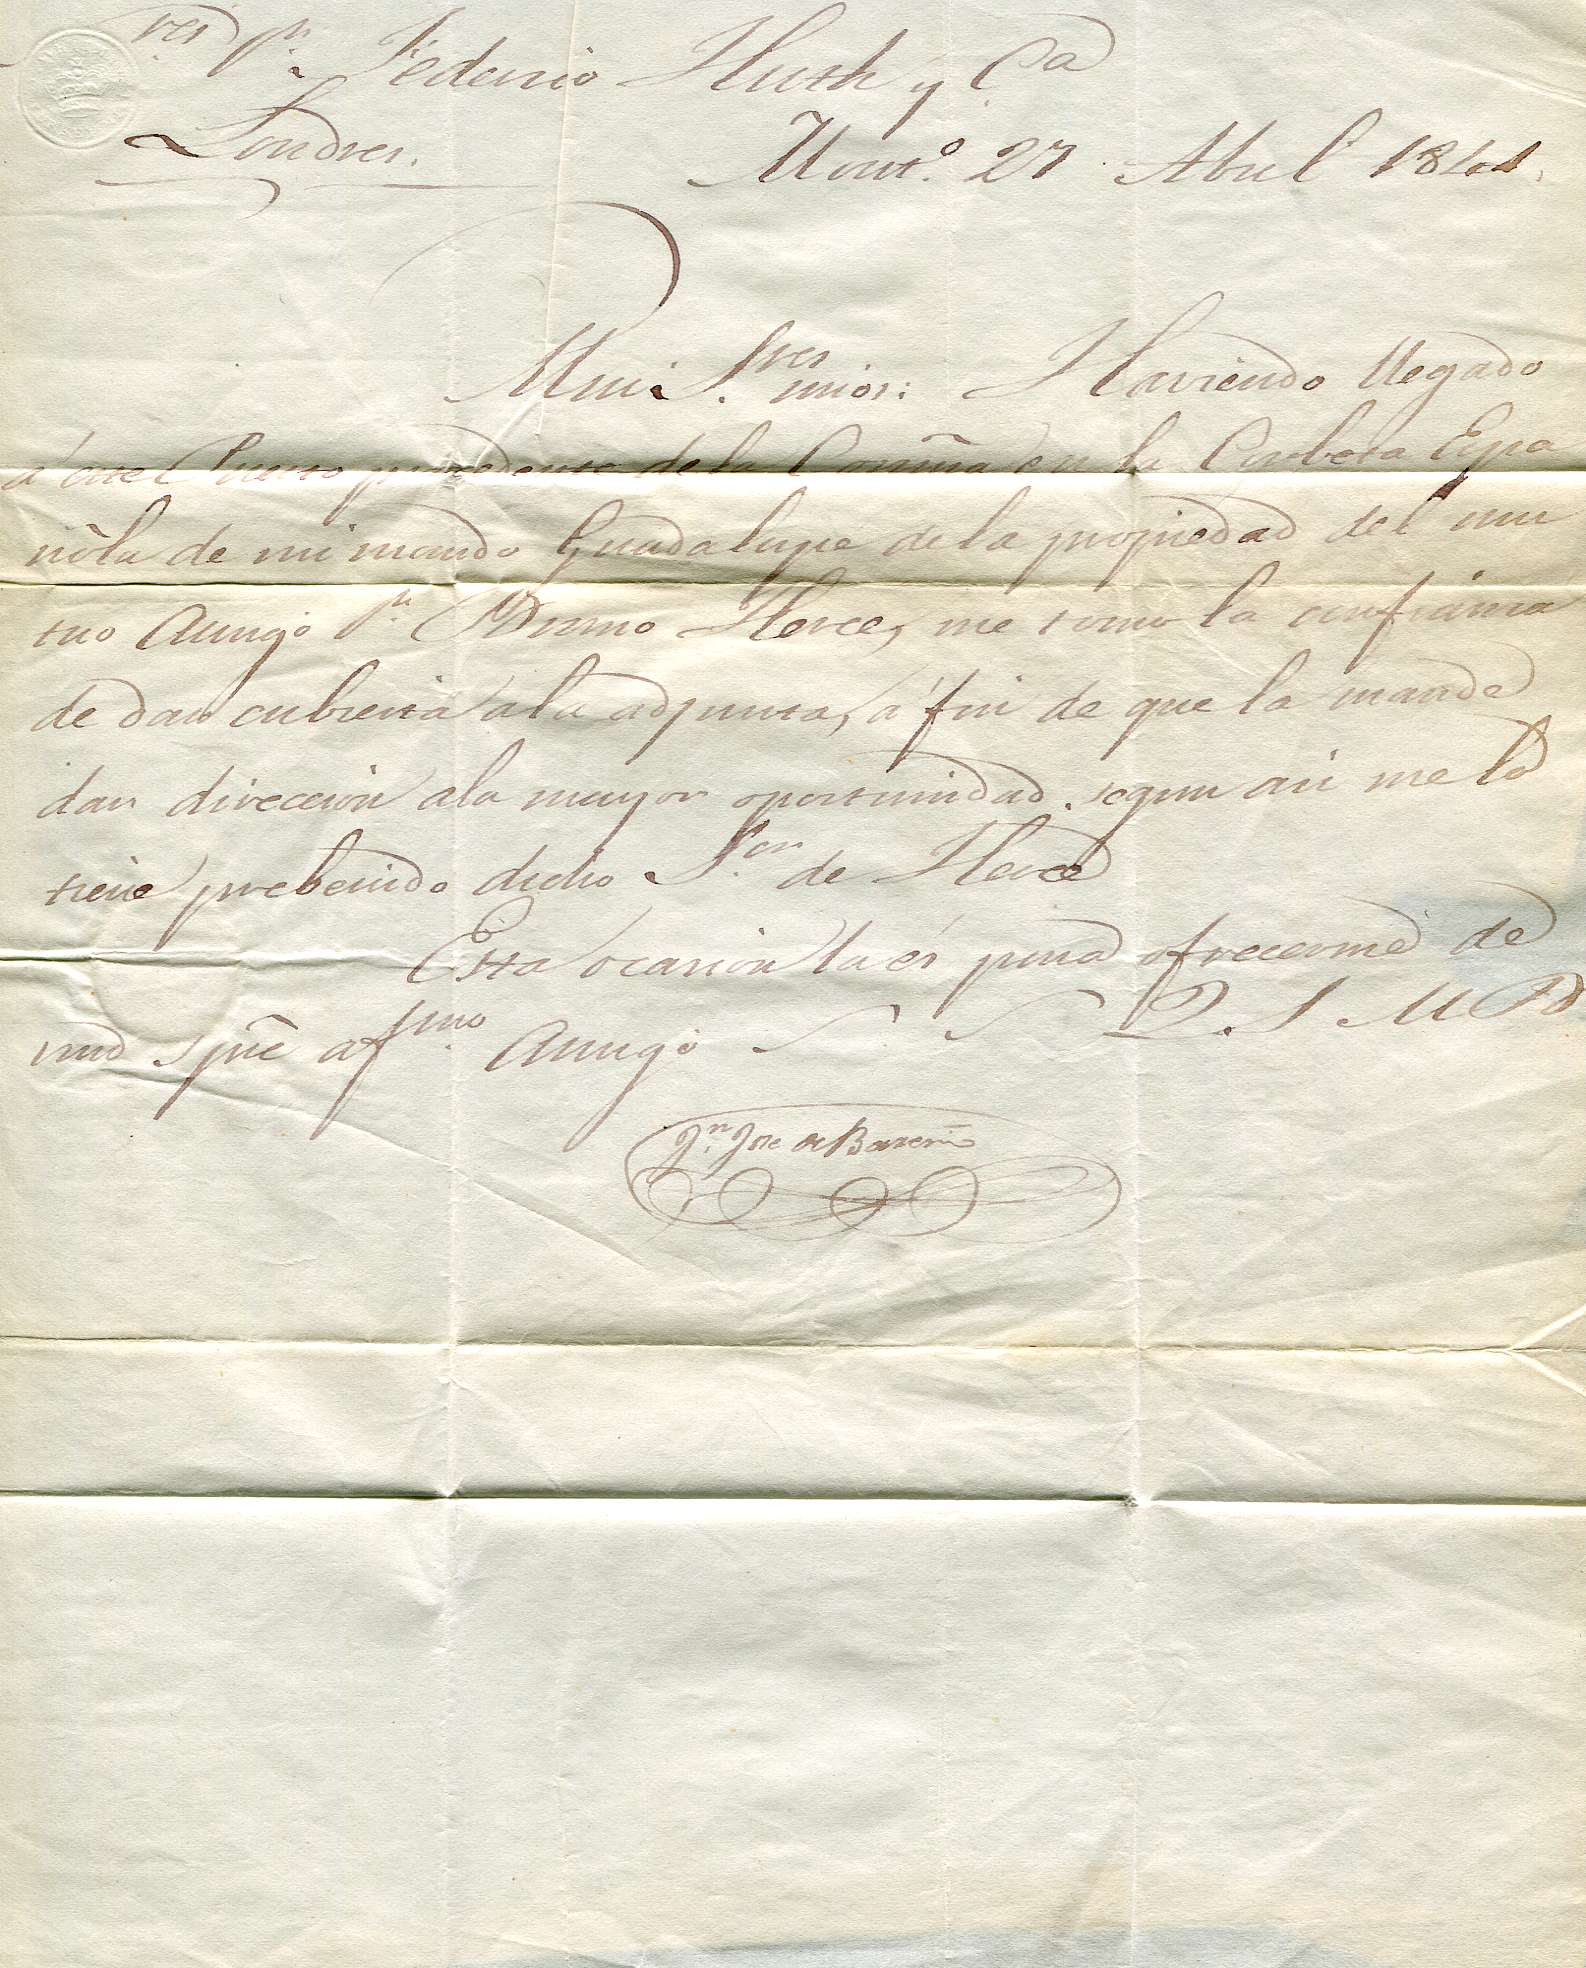 S.res D.n Federico Huth y C.a
Londres.
Mont.o 27 Abril 1844.
Mui S.res mios: Haviendo llegado
á este Puerto procedente de la Coruña en la Corbeta Espa
ñola de mi mando Guadalupe de la propiedad del mu
tuo Amigo D.n Bruno Herce, me tomo la confianza
de dar cubierta a la adjunta, á fin de que la mande
dar direccion a la mayor oportunidad segun asi me lo
tiene prebenido dicho S.or de Herce
Esta ocasion la es para ofrecerme de
vmd spre af.mo Amigo S. S. Q. S. M. B
J.n Jose de